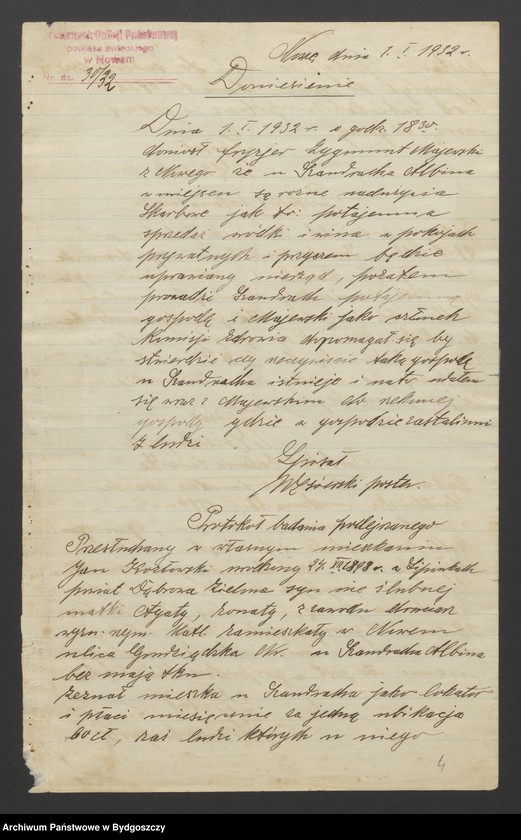 Posterunek Policji Państwowej
powiatu świeckiego
w Nowem
Nr. dz. 30/32
Nowe, dnia 1. I. 1932 r.
Doniesienie
Dnia 1. I. 1932 r. o godz. 18 30.
doniósł fryzjer Zygmunt Majewski
z Nowego że u Kandratha Albina
w miejscu są różne nadużycia
Skarbowe jak to: potajemna
sprzedaż wódki i wina w pokojach
prywatnych i przyczem będzie
uprawiany nierząd, pozatem
prowadzi Kandrath potajemną
gospodę i Majewski jako członek
Komisji Zdrowia dopomagał się by
stwierdzić czy rzeczywiście taką gospodę
u Kandratha istnieje i na to udałem
się wraz z Majewskim do rzekomej
gospody gdzie w gospodzie zastaliśmy
7 ludzi.
Spisał
poster.
Protokół badania podejrzanego
Przesłuchany w własnym mieszkaniu
Jan Kozłowski urodzony 24. VII 1878 r. w Lipinkach
powiat Dąbrowa Zielona syn nie ślubnej
matki Agaty, żonaty, z zawodu
wyzn. rzym. katl. zamieszkały w Nowem
ulica Grudziądzka Nr. u Kandratha Albina
bez majątku.
zeznał mieszka u Kandratha jako lokator
i płaci miesięcznie za jedną ubikacja
60 zł, zaś ludzi których u niego
4
Archiwum Państwowe w Bydgoszczy